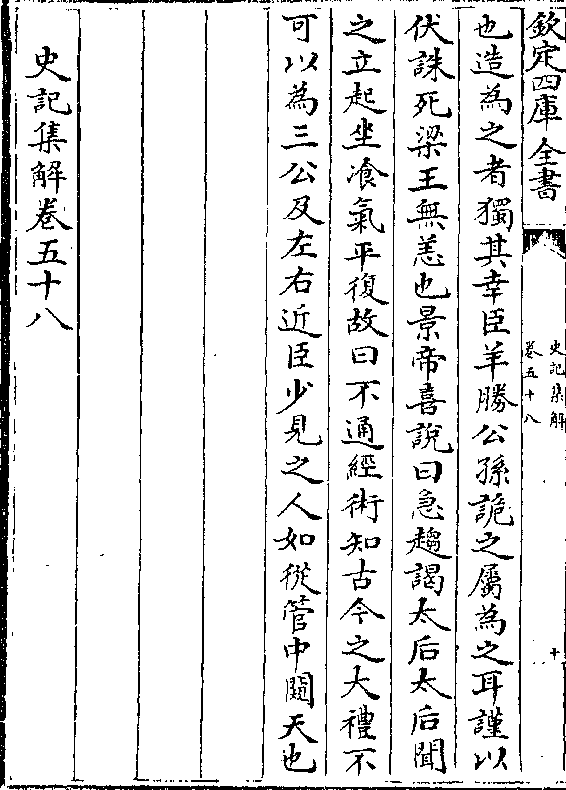 欽定四庫全書
史記集解
卷五十八
十
也造為之者獨其幸臣羊勝公孫詭之屬為之耳謹以
伏誅死梁王無恙也景帝喜說曰急趨謁太后太后聞
之立起坐飡氣平復故曰不通經術知古今之大禮不
可以為三公及左右近臣少見之人如從管中闚天也
史記集解卷五十八